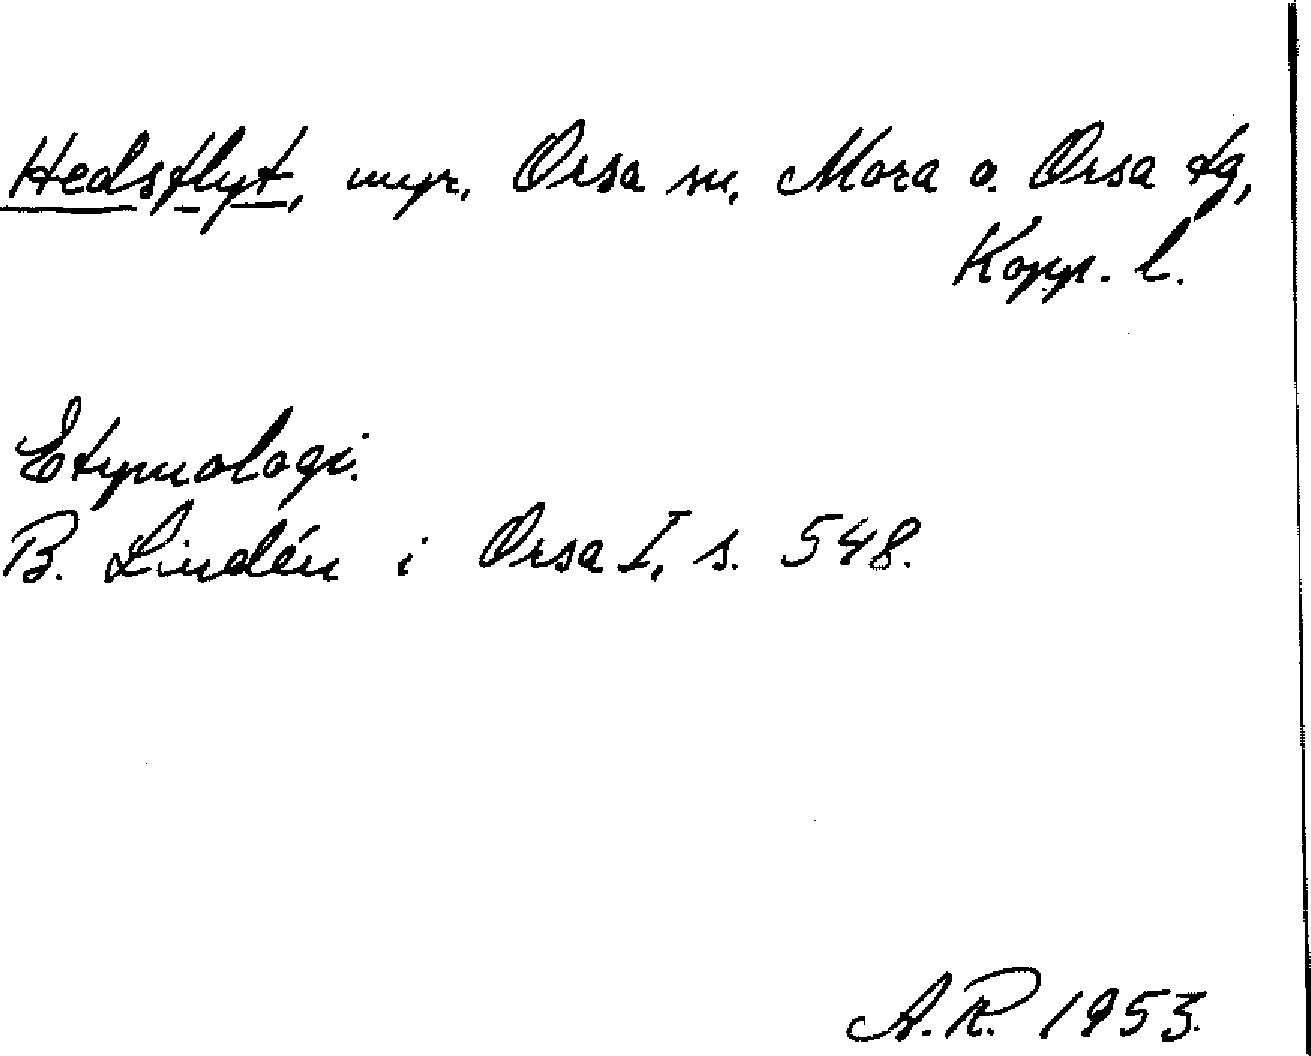 Hedsflyt, myr. Orsa sn, Mora o. Orsa tg,
Kopp. l.
Etymologi.
B. Lindén i Orsa I, s. 548.
A.R. 1953.